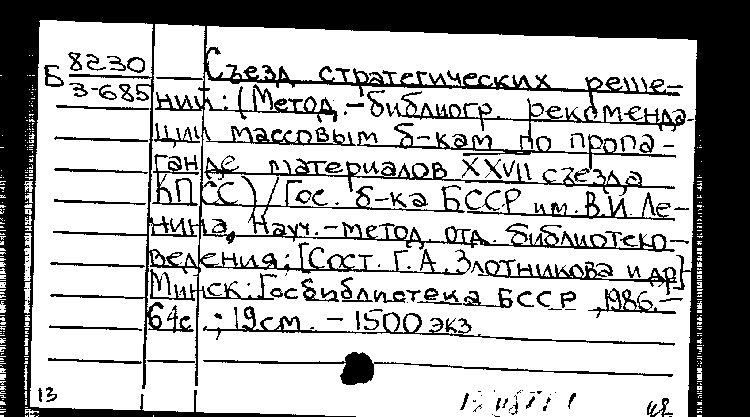 Б 8230
3-685
Съезд стратегических реше-
ний: (Метод.-библиогр. рекоменда-
ции массовым б-кам по пропа-
ганде материалов XXVII съезда
КПСС) / Гос. б-ка БССР им. В.И. Ле-
нина, Науч.-метод. отд. библиотеко-
ведения; [Сост. Г.А. Злотникова и др]
Минск: Госбиблиотека БССР, 1986.-
64с.; 19см. - 1500 экз.
13